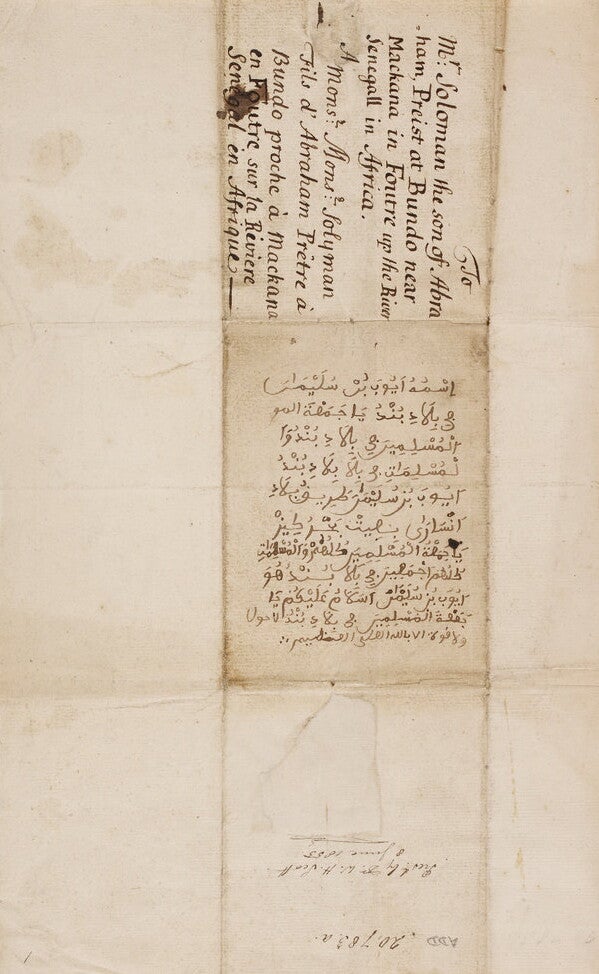 To
Mr. Soloman the son of Abra
ham, Preist at Bundo near
Mackana in Foutre up the River
Senegall in Africa.
A
Monsr. Monsr. Solyman
Fils d'Abraham Prêtre à
Bundo proche à Mackana
en Foutre sur la Riviere
Senegal en Afrique
اسمه ايوب بن سليمان
في بلاد بند يا جمعة المو
المسلمين في بلاد بندوا
لمسلمات في بلا بلاد بند
ايوب بن سليمان طريف بلاد
انسارى
يا جمعة المسلمين كلهم والمسلمات
كلهم اجمعين في بلاد بند هو
ايوب بن سليمان اسلام عليكم يا
جمعة المسلمين في بلاد بند لاحول
ولاقوة الا بالله العلي العظيم
Pres. by Dr. W. H. Scott
8 June 1855
ADD 20,783.a.
1